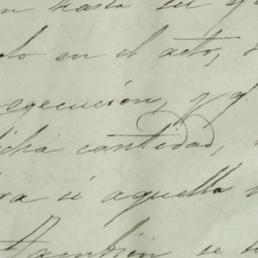 hasta su
en el acto,
egecución, y q
icha cantidad,
ra si aquella
También se